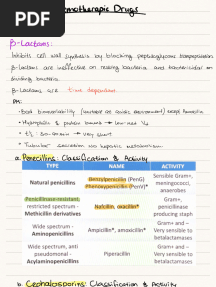 PDF
motherapic Drugs
β-Lactams:
Inhibits cell wall synthesis by blocking peptidoglycan
β-lactams are ineffective on resting bacteria and bactericidal on
dividing bacteria.
β-Lactams are time dependent.
PK:
Hydrophilic & protein bound → low
t½: 30-60min → very short
Tubular secretion no hepatic metabolism
a. Penicillins: Classification & Activity
TYPE NAME ACTIVITY
Natural penicillins Benzylpenicillin (PenG) Phenoxypenicillin (PenV)* Sensible Gram+, meningococci, anaerobes
Penicillinase-resistant, restricted spectrum - Methicillin derivatives Nafcillin, oxacillin* Gram+, penicillinase producing staph
Wide spectrum - Aminopenicillins Ampicillin*, amoxicillin* Gram+ and – Very sensible to betalactamases
Wide spectrum, anti pseudomonal - Acylaminopenicillins Piperacillin Gram+ and – Very sensible to betalactamases
b. Cephalosporins: Classification & Activity